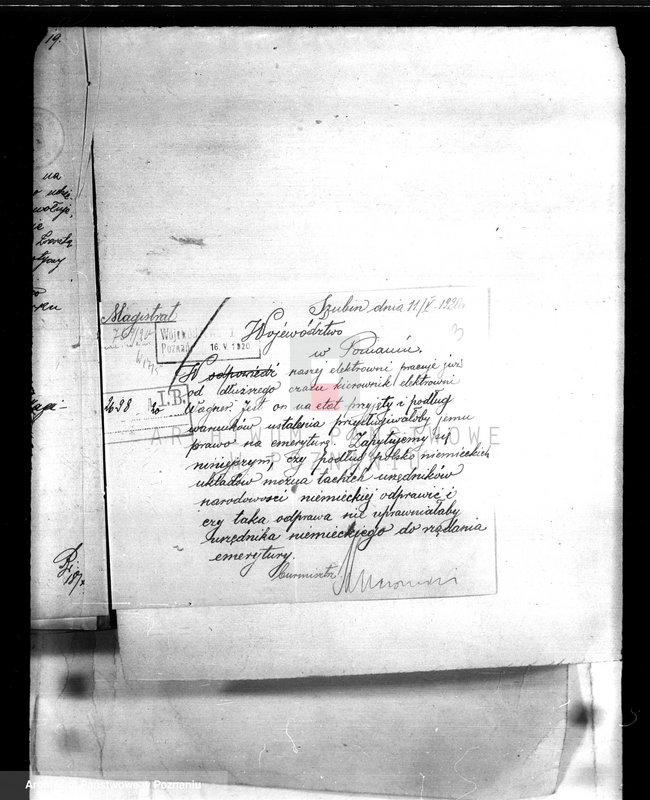 19.
na
Magistrat
Szubin dnia 11/V. 1920
Województwo
w Poznaniu.
Wojew
Poznań
16. V. 1920
I.B.
2698
W odpowiedzi naszej elektrowni pracuje już
od dłuższego czasu kierownik elektrowni
Wagner. Jest on na etat przyjęty i podług
warunków ustalenia przysługiwałoby jemu
prawo na emeryturę. Zapytujemy się
niniejszym, czy podług polsko niemieckich
układów można takich urzędników
narodowości niemieckiej odprawić i
czy taka odprawa nie uprawniałaby
urzędnika niemieckiego do rządania
emerytury.
Burmistrz
ARCHIWUM PAŃSTWOWE
W POZNANIU
Archiwum Państwowe w Poznaniu